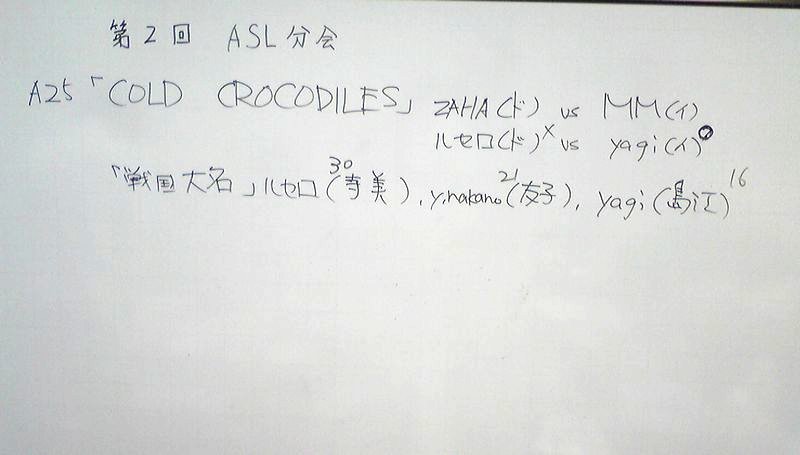 第2回 ASL分会
A25「COLD CROCODILES」 ZAHA(ド) vs MM(イ)
ルセロ(ド)× vs yagi(イ)
「戦国大名」ルセロ(寺美)30, y.nakano(友子)21, yagi(島江)16